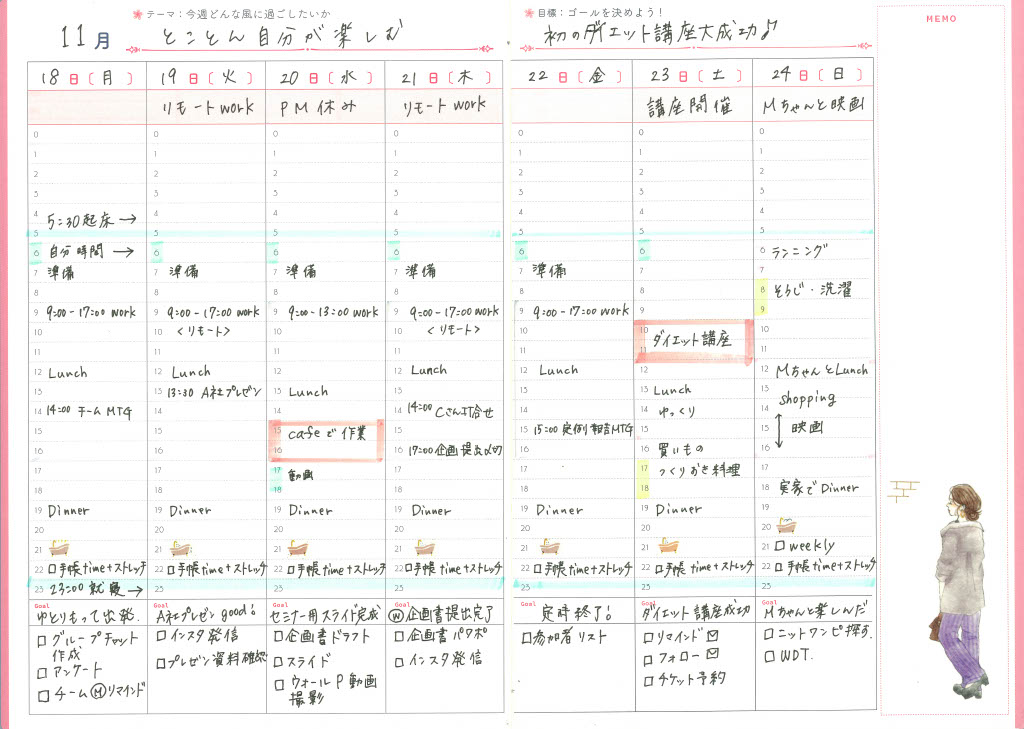 テーマ：今週どんな風に過ごしたいか
11月 とことん自分が楽しむ
目標：ゴールを決めよう！
初のダイエット講座大成功♪
MEMO
18日〔月〕
0
1
2
3
4
5:30起床→
5
6 自分時間→
7 準備
8
9 9:00-17:00 work
10
11
12 Lunch
13
14 14:00 チームMTG
15
16
17
18
19 Dinner
20
21
22 □手帳time+ストレッチ
23 23:00就寝→
Goal
ゆとりもって出発
□グループチャット
作成
□アンケート
□チームⓂリマインド
19日〔火〕
リモートwork
0
1
2
3
4
5
6
7 準備
8
9 9:00-17:00 work
10 <リモート>
11
12 Lunch
13 13:30 A社プレゼン
14
15
16
17
18
19 Dinner
20
21
22 □手帳time+ストレッチ
23
Goal
A社プレゼンgood!
□インスタ発信
□プレゼン資料確認
20日〔水〕
PM休み
0
1
2
3
4
5
6
7 準備
8
9 9:00-13:00 work
10
11
12
13 Lunch
14
15 cafeで作業
16
17 動画
18
19 Dinner
20
21
22 □手帳time+ストレッチ
23
Goal
セミナー用スライド完成
□企画書ドラフト
□スライド
□ウォールP動画
撮影
21日〔木〕
リモートwork
0
1
2
3
4
5
6
7 準備
8
9 9:00-17:00 work
10 <リモート>
11
12 Lunch
13
14 14:00 Cさん打合せ
15
16 17:00企画提出〆切
17
18
19 Dinner
20
21
22 □手帳time+ストレッチ
23
Goal
Ⓦ企画書提出完了
□企画書パワポ
□インスタ発信
22日〔金〕
0
1
2
3
4
5
6
7 準備
8
9 9:00-17:00 work
10
11
12 Lunch
13
14
15 15:00 定例報告MTG
16
17
18
19 Dinner
20
21
22 □手帳time+ストレッチ
23
Goal
定時終了!
□参加者リスト
23日〔土〕
講座開催
0
1
2
3
4
5
6
7
8
9
10 ダイエット講座
11
12
13 Lunch
14 ゆっくり
15
16 買いもの
17 つくりおき料理
18
19 Dinner
20
21
22 □手帳time+ストレッチ
23
Goal
ダイエット講座成功
□リマインド✉
□フォロー✉
□チケット予約
24日〔日〕
Mちゃんと映画
0
1
2
3
4
5
6 ランニング
7
8 そうじ・洗濯
9
10
11
12 MちゃんとLunch
13 shopping
14
15 映画
16
17
18 実家でDinner
19
20
21 □weekly
22 □手帳time+ストレッチ
23
Goal
Mちゃんと楽しんだ
□ニットワンピ探す.
□WDT.